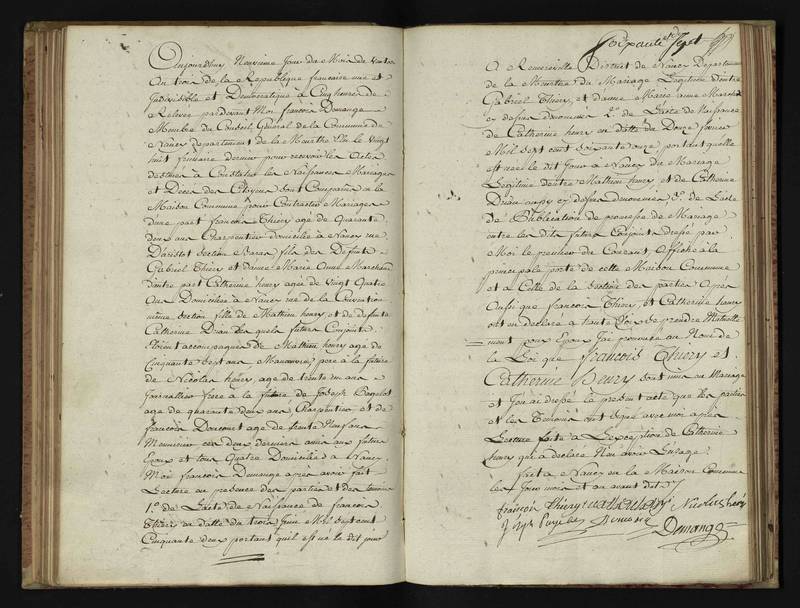 Aujourd'huy Neuvieme Jour du Mois de Ventose
An trois de la Republique francaise une et
Indivisible et Democratique à Cinq heures de
Relevée pardevant Moi francois Demange
Membre du Conseil General de la Commune de
Nancy departement de la Meurthe Elu le vingt
huit frimaire dernier pour recevoir les Actes
destinés à Constater les Naissances Mariages
et Décès des Citoyens sont Comparus en la
Maison Commune pour Contracter Mariage
d'une part francois Thiery agé de quarante
deux ans Charpentier domicilié à Nancy rue
D'aristot Section fils des Defunts
Gabriel Thiery et dame Marie Anne Marchand
d'autre part Catherine henry agée de vingt Quatre
Ans Domiciliée a Nancy rue de la Convention
même Section fille de Mathieu henry et de defunte
Catherine lesquels futurs Conjoints
étoient accompagnés de Mathieu henry agé de
Cinquante sept ans Manoeuvre pere à la future
de Nicolas henry agé de trente un ans
Journallier frere à la future de Joseph
agé de quarante deux ans Charpentier et de
francois agé de trente Neuf ans
Menuisier ces deux derniers amis aux futurs
Epoux et tous Quatre Domiciliés à Nancy.
Moi francois Demange apres avoir fait
Lecture en presence des parties et des temoins
1.º de L'acte de Naissance de francois
Thiery en datte du trois Juin Mil sept cent
Cinquante deux portant qu'il est né le dit jour
à Remereville District de Nancy Departement
de la Meurthe du Mariage Legitime d'entre
Gabriel Thiery, et dame Marie anne Marchand
cy dessus denommés 2.º de L'acte de Naissance
de Catherine henry en datte du Douze
Mil sept cent soixante onze, portant qu'elle
est née le dit Jour à Nancy du Mariage
Legitime d'entre Mathieu henry, et de Catherine
cy dessus denommés, 3.º de L'acte
de Publication de promesse de Mariage
entre les dits futurs Conjoints dressé par
Moi le premier du Courant Affiché à la
principale porte de cette Maison Commune
et à Celle de la Section des parties Apres
Aussi que francois Thiery, et Catherine henry
ont eu declaré à haute Voix se prendre Mutuelle
ment pour Epoux J'ai prononcé au Nom de
la Loi que francois Thiery et
Catherine Henry sont unis en Mariage
et J'en ai dressé le present acte que les parties
et les Temoins ont signé avec moi apres
Lecture faite à L'exception de Catherine
henry qui a declaré N'en avoir L'usage.
fait à Nancy en la Maison Commune
les Jour mois et an avant dits
francois Thiery Nicolas henry
Demange